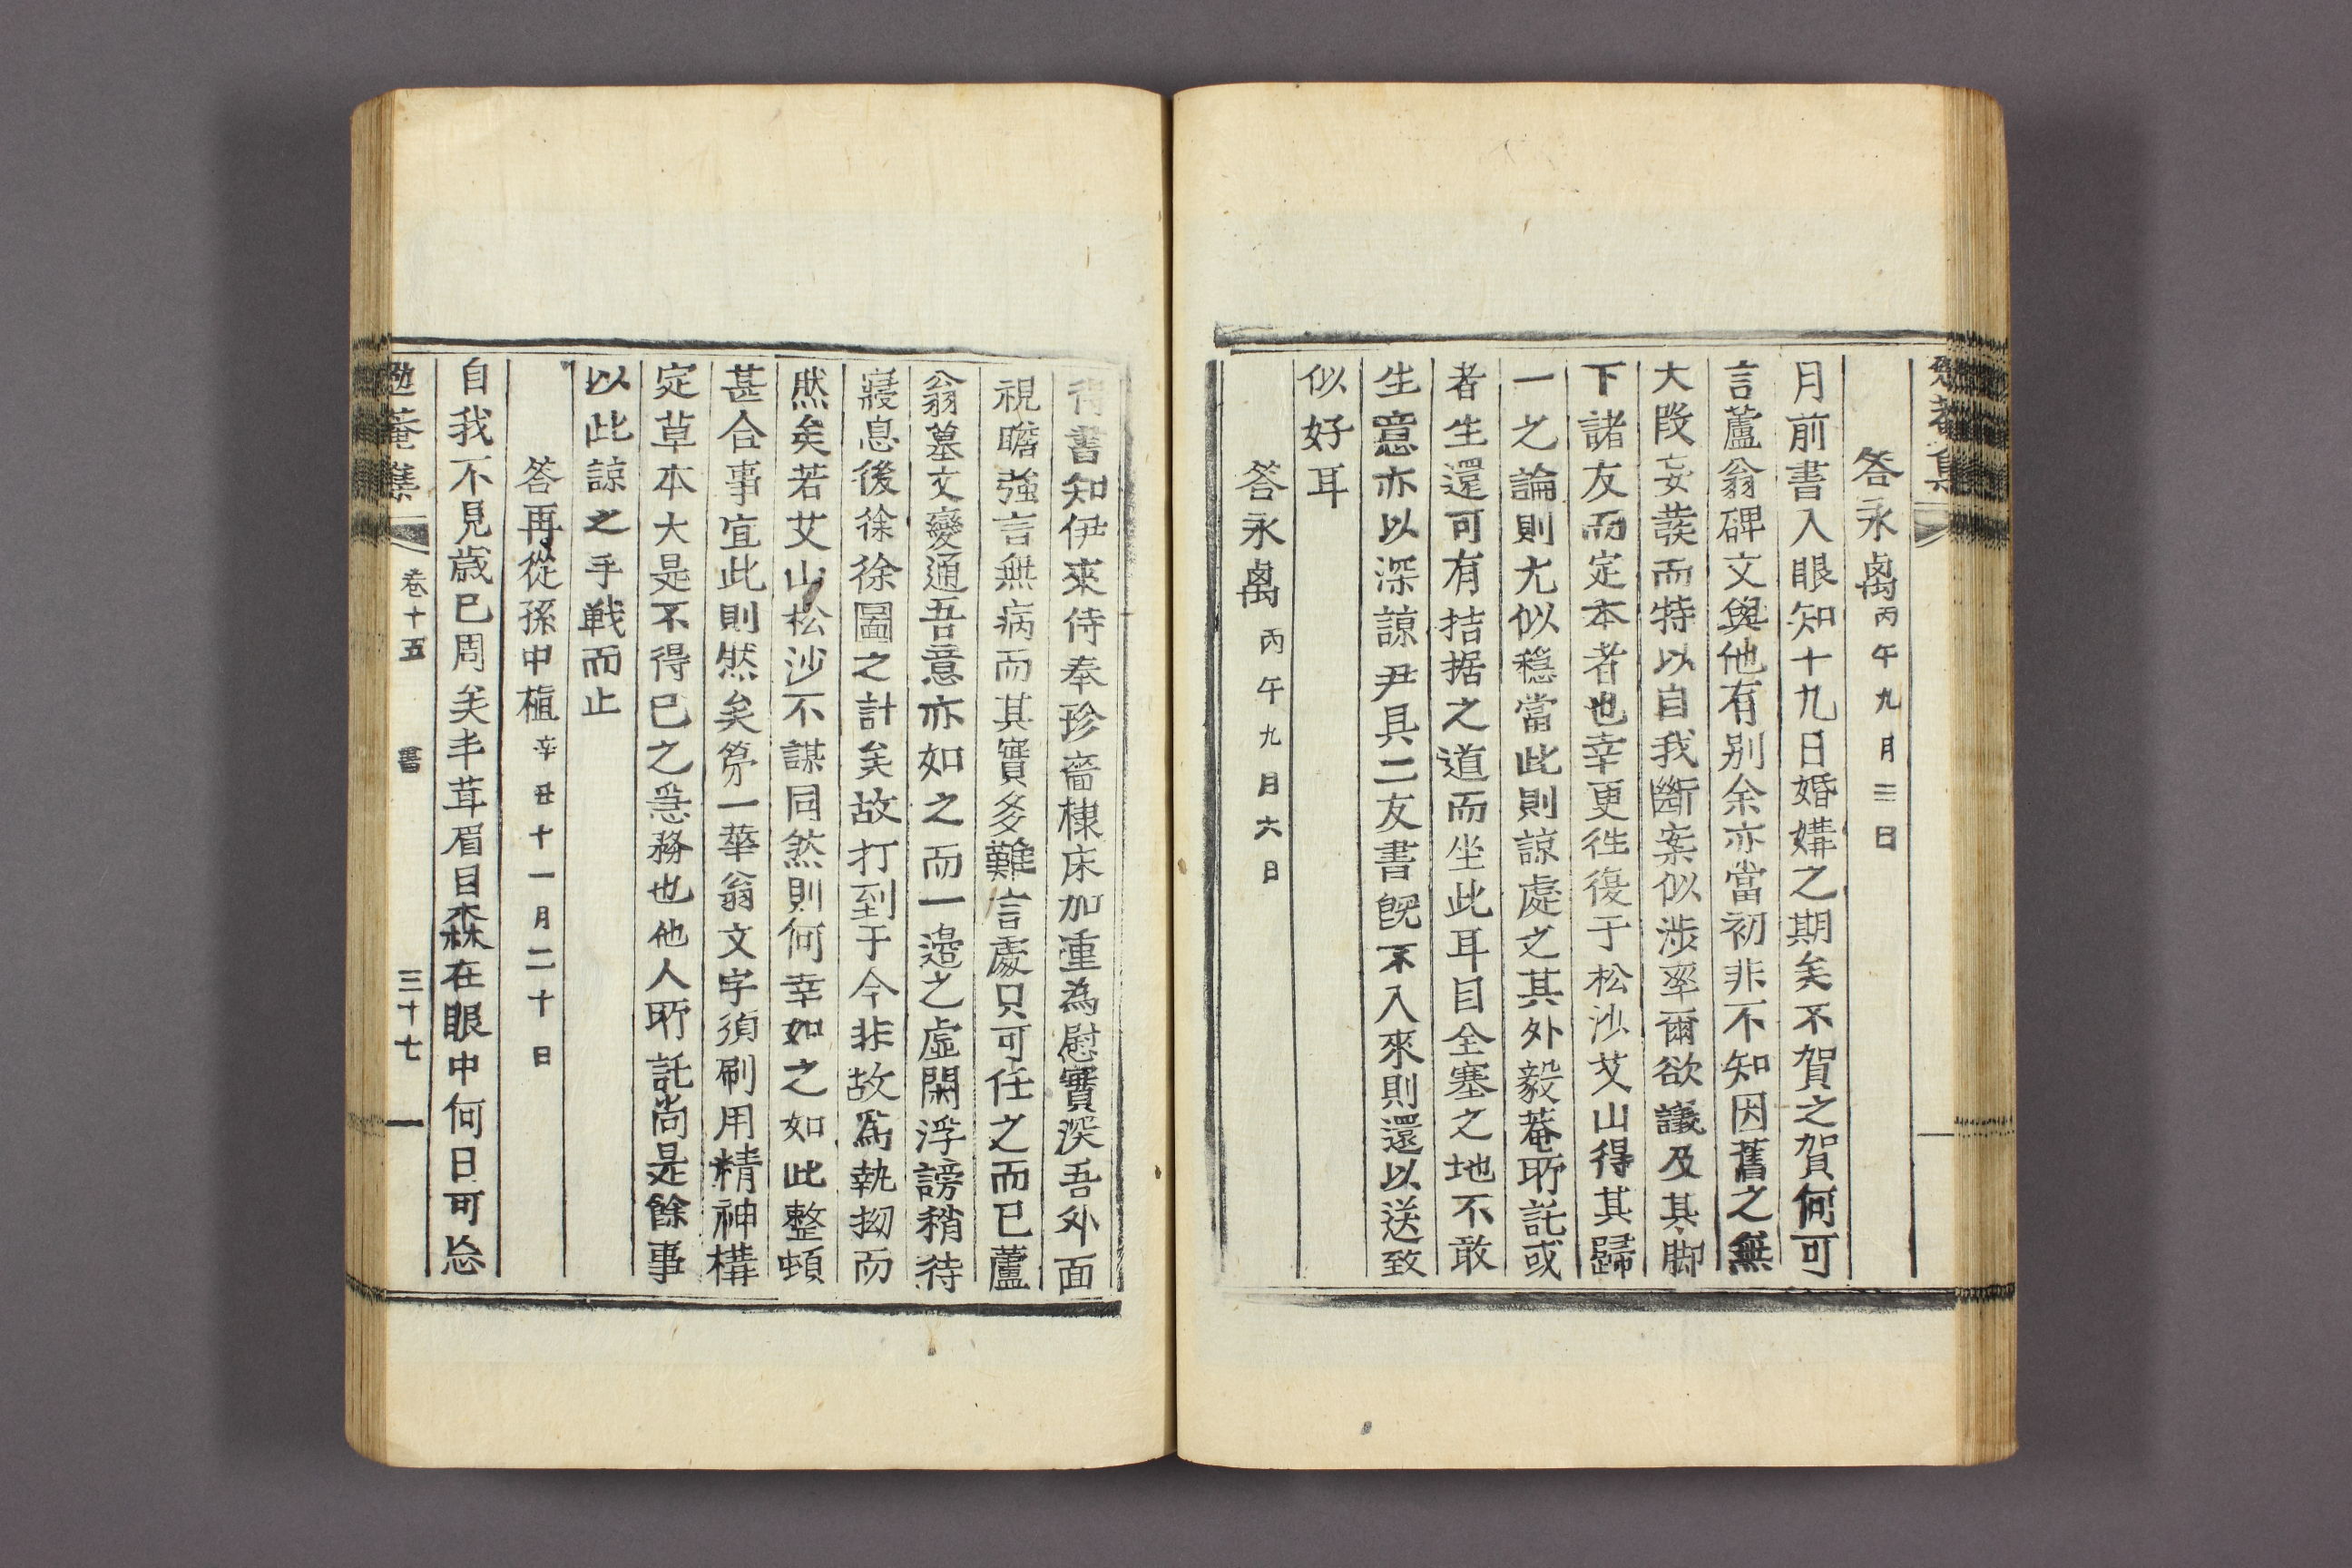 勉菴集
答永卨 丙午九月三日
月前書入眼知十九日婚媾之期矣不賀之賀何可
言蘆翁碑文與他有別余亦當初非不知因舊之無
大段妄發而特以自我斷案似涉率爾欲議及其脚
下諸友而定本者也幸更往復于松沙艾山得其歸
一之論則尤似穩當此則諒處之其外毅菴所託或
者生還可有拮据之道而坐此耳目全塞之地不敢
生意亦以深諒尹具二友書旣不入來則還以送致
似好耳
答永卨 丙午九月六日
得書知伊來侍奉珍嗇棣床加重為慰實深吾外面
視瞻強言無病而其實多難言處只可任之而已蘆
翁墓文變通吾意亦如之而一邉之虛閑浮謗稍待
寢息後徐徐圖之計矣故打到于今非故爲執拗而
然矣若艾山松沙不謀同然則何幸如之如此整頓
甚合事宜此則然矣第一華翁文字須刷用精神構
定草本大是不得已之急務也他人所託尚是餘事
以此諒之手戰而止
答再從孫中植 辛丑十一月二十日
自我不見歲已周矣丰茸眉目森在眼中何日可忘
勉菴集 卷十五 書 三十七